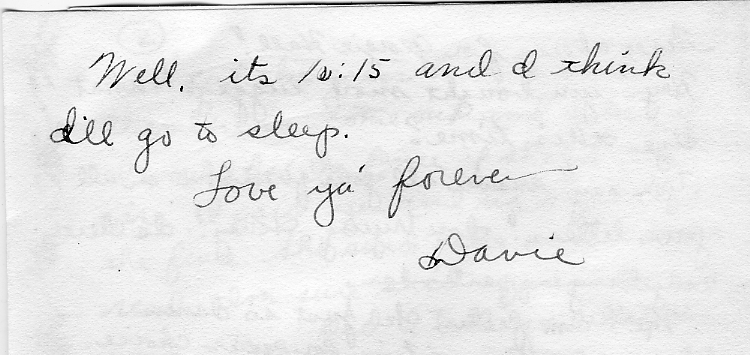 Well, its 10:15 and I think
I'll go to sleep.
Love ya' forever
Davie